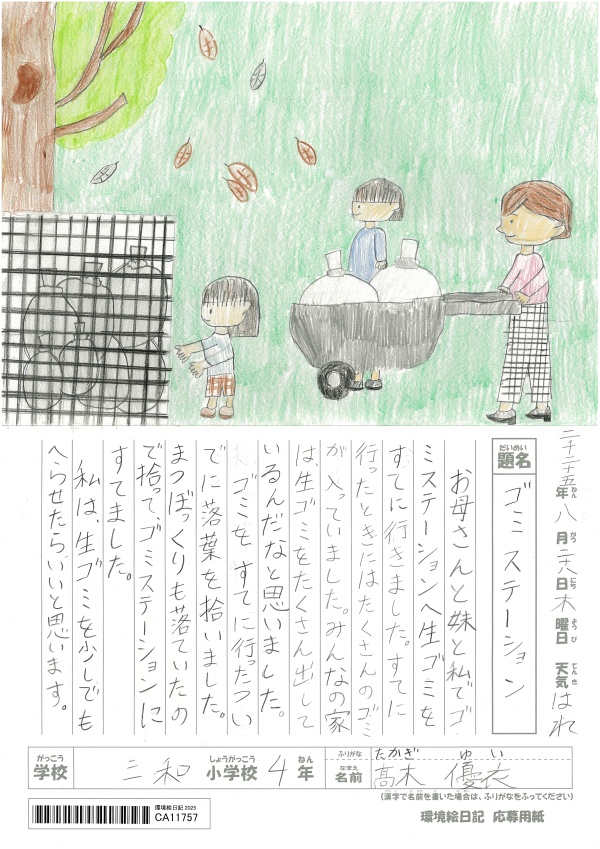 二十二十五年八月二八日木曜日 天気はれ
ねん がつ にち ようび てんき
だいめい
題名
ゴミステーション
お母さんと妹と私でゴ
ミステーションへ生ゴミを
すてに行きました。すてに
行ったときにはたくさんのゴミ
が入っていました。みんなの家
は、生ゴミをたくさん出して
いるんだなと思いました。
ゴミをすてに行ったつい
でに落葉を拾いました。
まつぼっくりも落ていたの
で拾って、ゴミステーションに
すてました。
私は、生ゴミを少しでも
へらせたらいいと思います。
がっこう しょうがっこう ねん
学校 三和 小学校 4年
ふりがな たかぎ ゆい
なまえ
名前 髙木 優衣
(漢字で名前を書いた場合は、ふりがなをふってください)
環境絵日記 2025
CA11757
環境絵日記 応募用紙